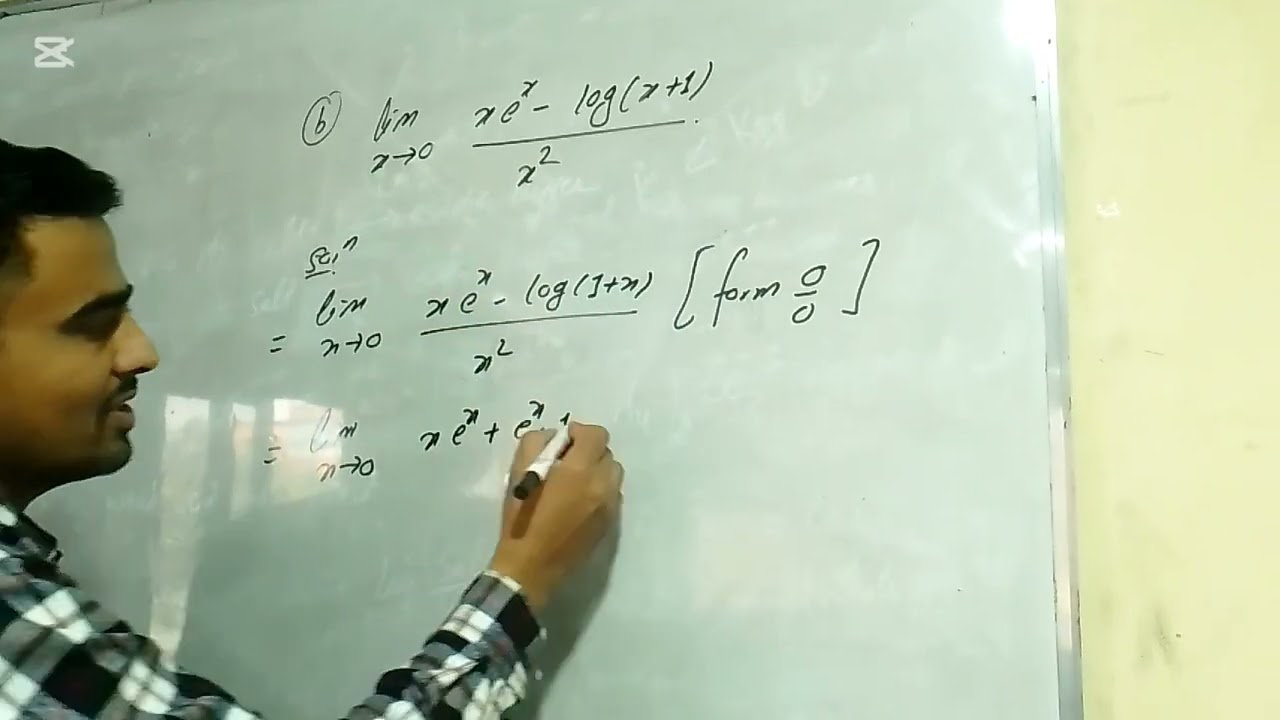 (b) lim x→0 (x e^x - log(x+1)) / x^2.
Sol^n
= lim x→0 (x e^x - log(1+x)) / x^2 [form 0/0]
= lim x→0 x e^x + e^x · 1